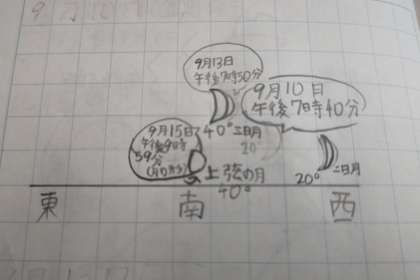 9月13日
午後7時50分
9月10日
午後7時40分
9月15日
午後9時
59分
40°三日月
20
上弦の月
40°
20°
二日月
東
南
西